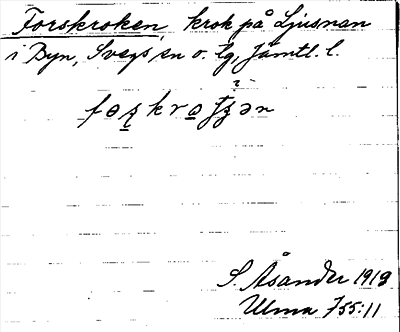 Forskroken, krok på Ljusnan
i Byn, Svegs sn o. lg, Jämtl. l.
S. Åsander 1919
Ulma 755:11